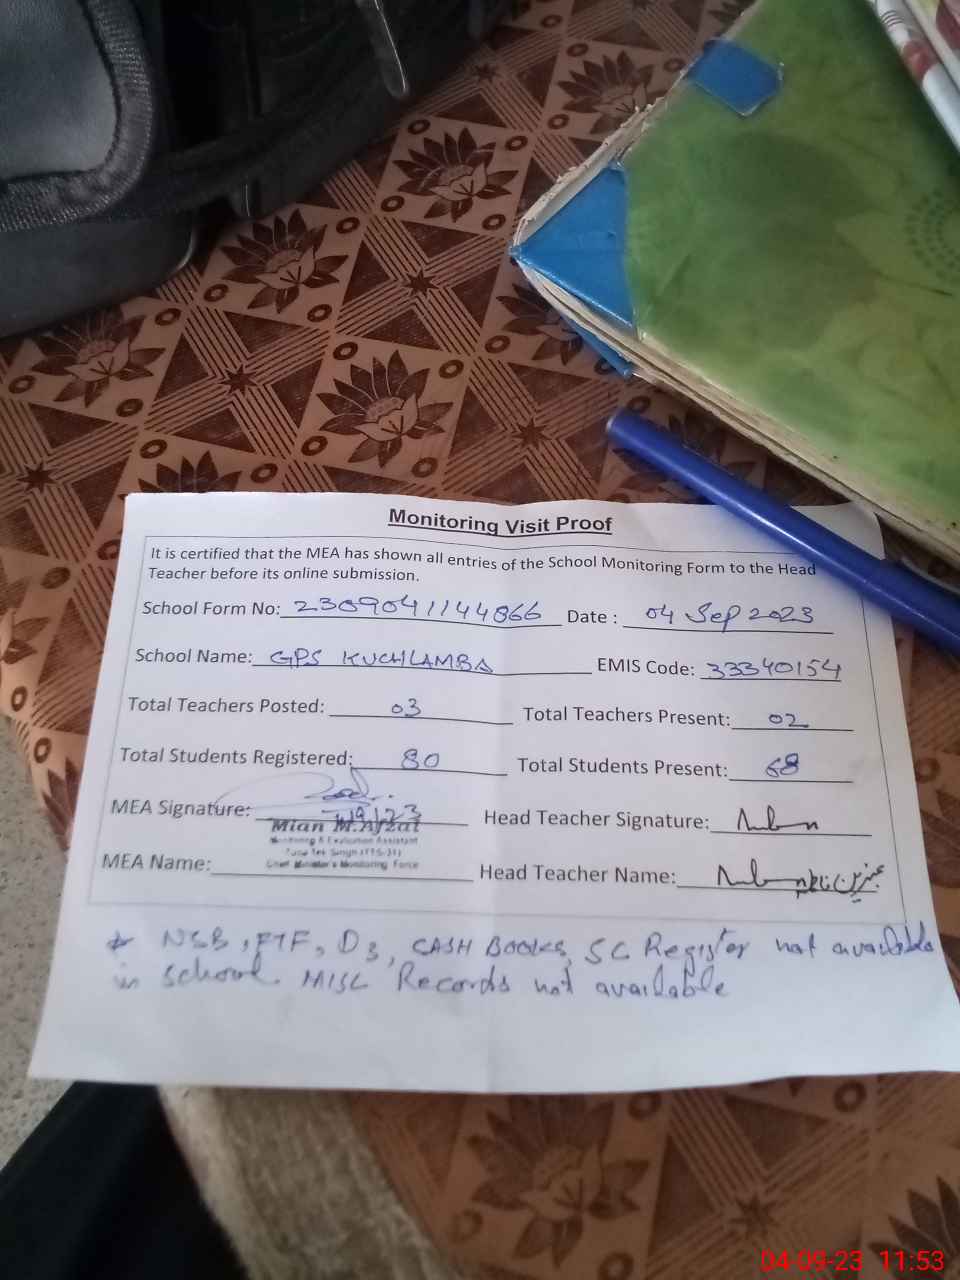 Monitoring Visit Proof
It is certified that the MEA has shown all entries of the School Monitoring Form to the Head
Teacher before its online submission.
School Form No: 2309041144066 Date : 04 Sep 2023
School Name: GPS KUCHLAMBA EMIS Code: 33340154
Total Teachers Posted: 03 Total Teachers Present: 02
Total Students Registered: 80 Total Students Present: 68
MEA Signature: Head Teacher Signature:
Mian M.Afzal
Monitoring & Evaluation Assistant
Toba Tek Singh (TTS-31)
Chief Minister's Monitoring Force
MEA Name: Head Teacher Name:
* NSB, FTF, D3, CASH BOOKS, SC Register not available
in school. MISC Records not available
04-09-23 11:53